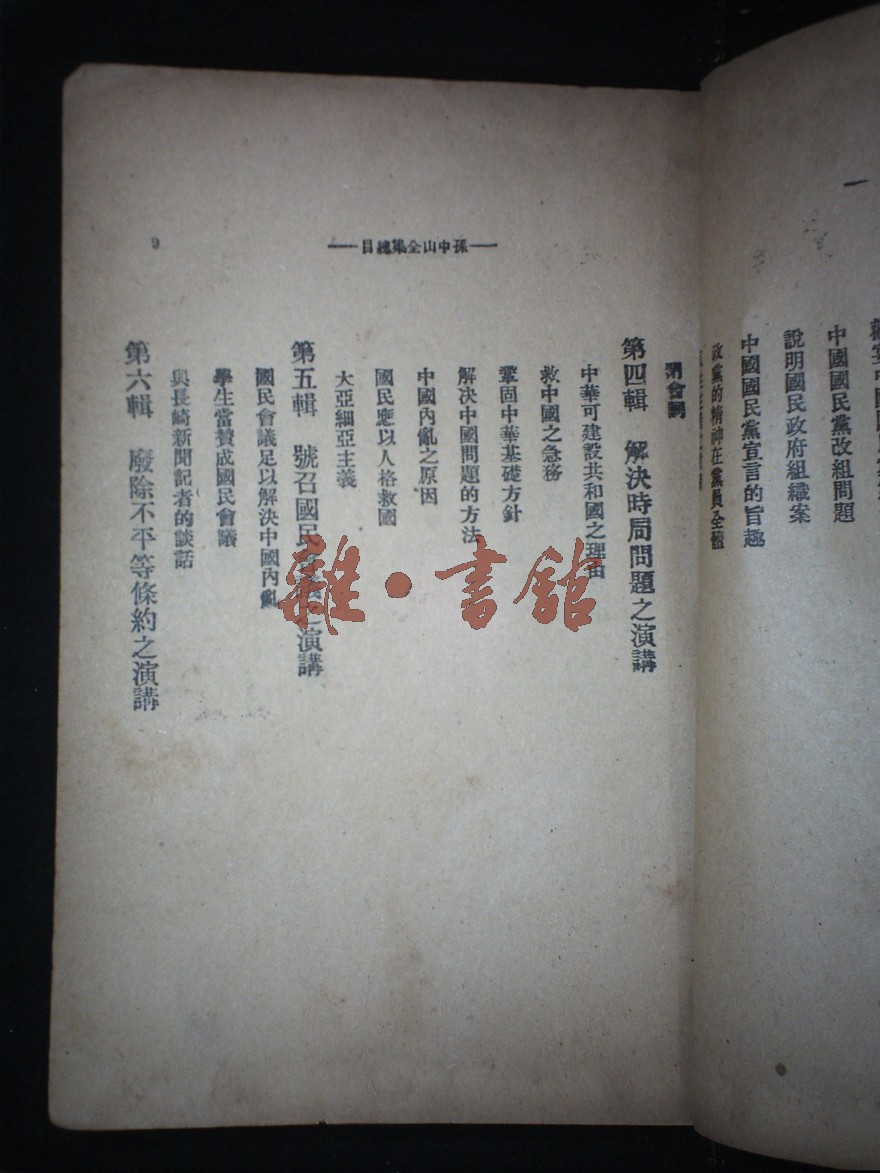 中國國民黨改組問題
說明國民政府組織案
中國國民黨宣言的旨趣
政黨的精神在黨員全體
——孫中山全集總目—— 9
閉會詞
第四輯 解決時局問題之演講
中華可建設共和國之理由
救中國之急務
鞏固中華基礎方針
解決中國問題的方法
中國內亂之原因
國民應以人格救國
大亞細亞主義
第五輯 號召國民會議之演講
國民會議足以解決中國內亂
學生當贊成國民會議
與長崎新聞記者的談話
第六輯 廢除不平等條約之演講
雜·書館